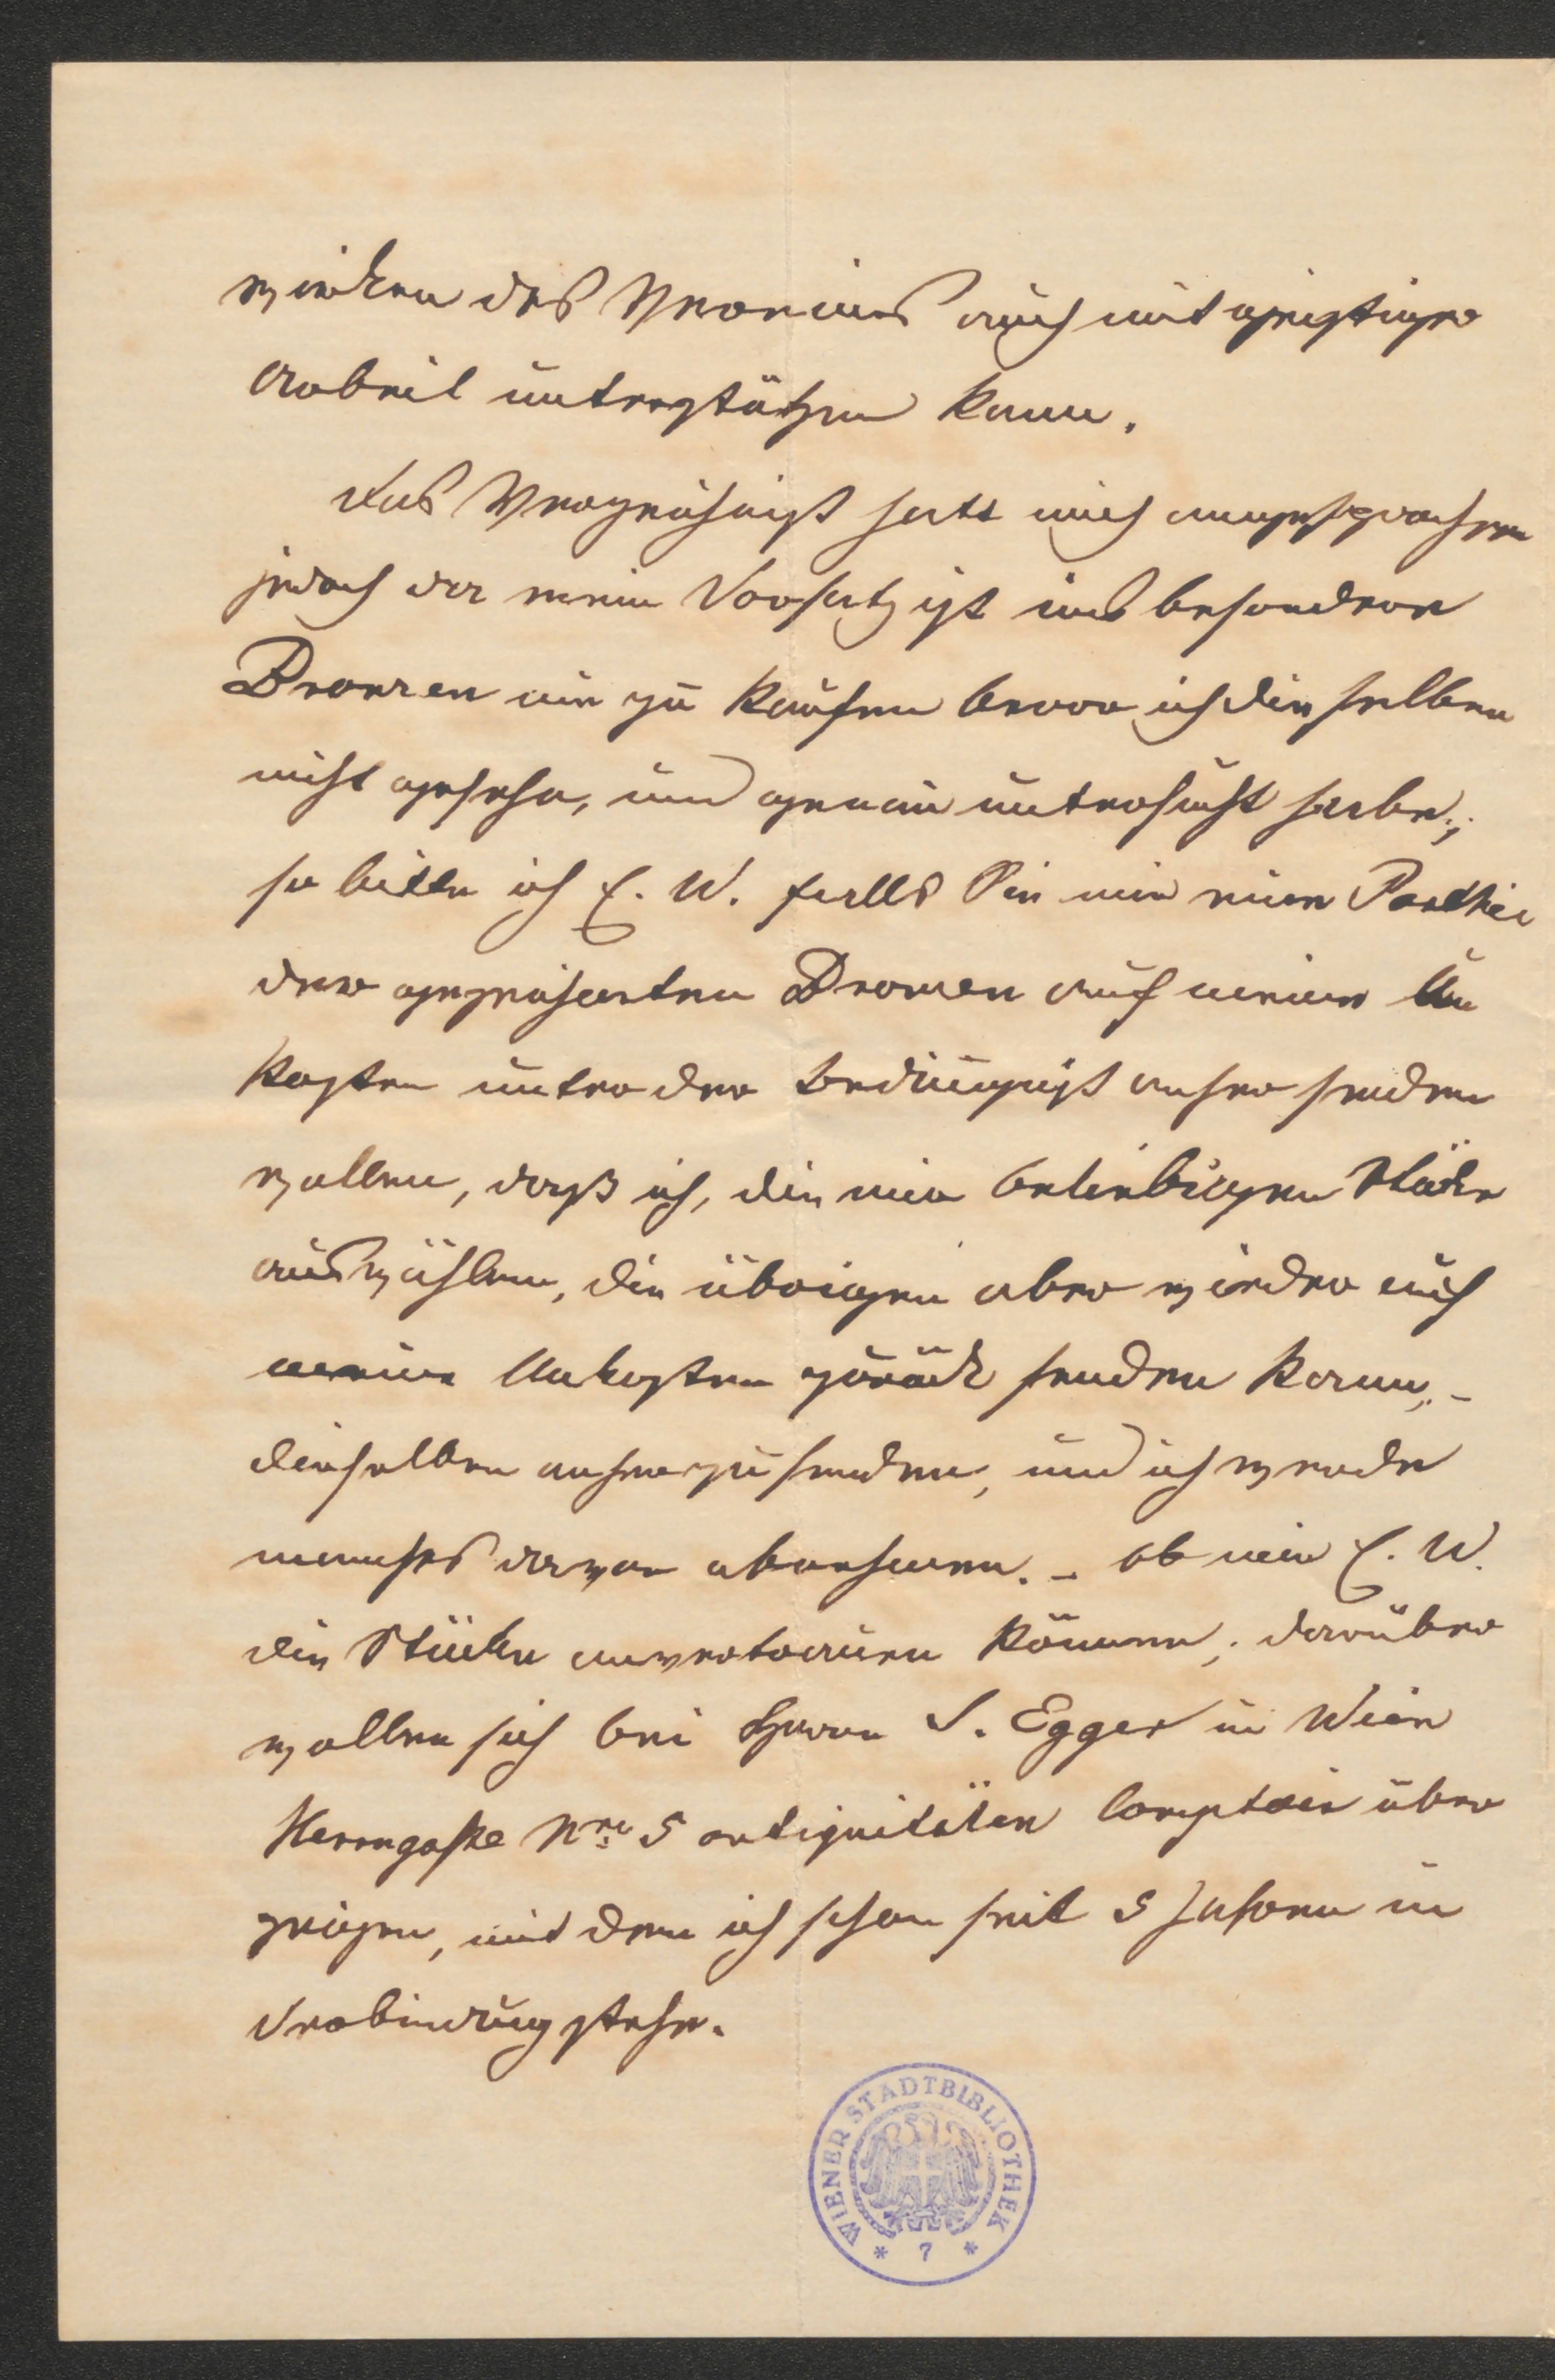 wirken des Vereines auch mit geistiger
Arbeit unterstützen kann.
Das Verzeichniß hatt mich angesprochen
jedoch da mein Vorsatz ist ins besondere
Bronzen nie zu kaufen bevor ich dieselben
nicht gesehn, und genau untersucht habe,;
so bitte ich E. W. falls Sie mir eine Parthie
der gezeichneten Bronzen auf meine Un
kosten unter der Bedingniß anher senden
wollen, daß ich, die mir beliebigen Stücke
auswählen, die übrigen aber wieder auf
meine Unkosten zurück senden kann, -
dieselben anher zu senden, und ich werde
manches davon abnehmen. - ob mir E. W.
die Stücke anvertrauen können, darüber
wollen sich bei Herrn S. Egger in Wien
Herrngaße Nro 5 antiquitäten Comptoir über
zeugen, mit dem ich schon seit 5 Jahren in
Verbindung stehe.
WIENER STADTBIBLIOTHEK
* 7 *